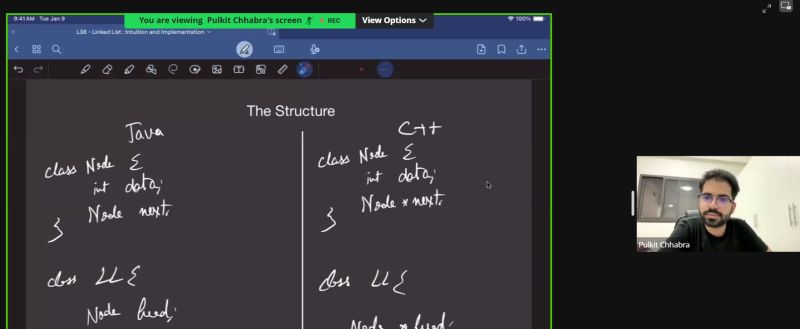 9:41 AM Tue Jan 9
You are viewing Pulkit Chhabra's screen
REC
View Options
100%
L38 - Linked List : Intuition and Implementation
The Structure
Java
class Node {
int data;
Node next;
}
class LL {
Node head;
C++
class Node {
int data;
Node * next;
}
class LL {
Node * head;
Pulkit Chhabra